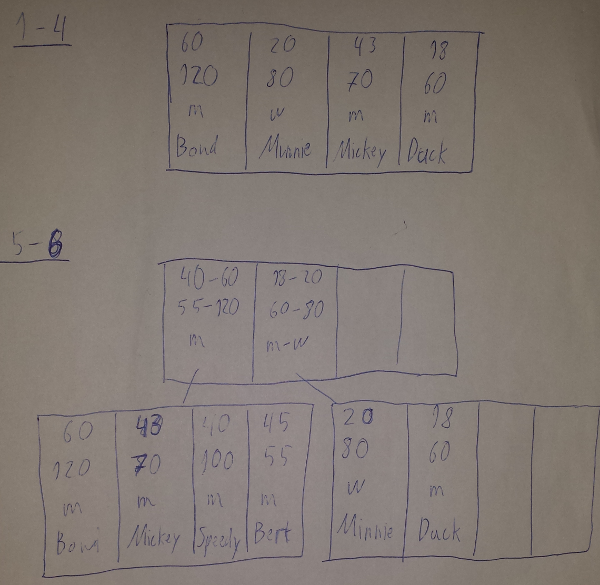 1-4
60 20 43 18
120 80 70 60
m w m m
Bond Minnie Mickey Duck
5-6
40-60 18-20
55-120 60-80
m m-w
60 43 40 45 20 18
120 70 100 55 80 60
m m m m w m
Bond Mickey Speedy Bert Minnie Duck